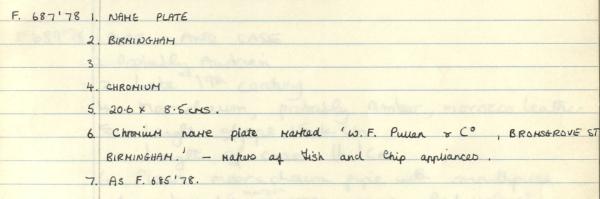 F. 687'78 1. NAME PLATE
2. BIRMINGHAM
3
4. CHROMIUM
5. 20.6 x 8.5 cms.
6. Chromium name plate marked 'W.F. Pullan & Co, BROMSGROVE ST
BIRMINGHAM.' - makers of Fish and Chip appliances.
7. As F. 685'78.